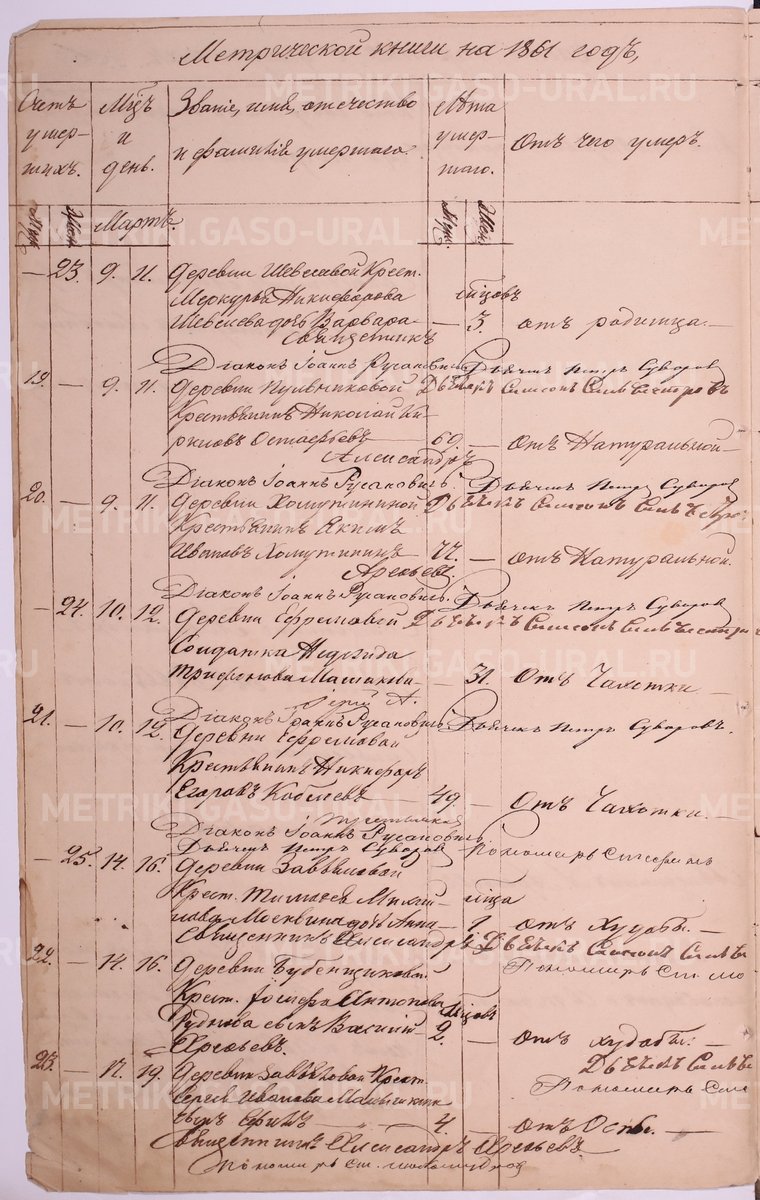 Метрической книги на 1861 годъ,
Счетъ умершихъ. Мцъ и день. Званіе, имя, отечество и фамилія умершаго. Лѣта умершаго. Отъ чего умеръ.
Муж. Жен. Мартъ. Муж. Жен.
— 23. 9. 11. Деревни Шевелевой Крест.
Меркурья Никифорова мѣсяцовъ
Шевелева дочь Варвара — 3. отъ родимца. —
Священникъ
Діаконъ Іоаннъ Русановичь Дьячекъ Петръ Суворов
19. — 9. 11. Деревни Дьячекъ Симеонъ Сильвестровъ
Крестьянинъ Николай
69. — Отъ Натуральной —
Александръ
Діаконъ Іоаннъ Русановичь. Дьячекъ Петръ Суворов
20. — 9. 11. Деревни Хомутининой Дьячекъ Симеонъ Сильвестро
Крестьянинъ Акимъ
Ивановъ Хомутининъ 77. — отъ Натуральной.
Арефьевъ
Діаконъ Іоаннъ Русановичь. Дьячекъ Петръ Суворов
— 24. 10. 12. Деревни Ефремовой Дьячекъ Симеонъ Сильвестро
Солдатка Надежда
Трифонова — 31. Отъ Чахотки —
Іерей А.
Діаконъ Іоаннъ Русановичь Дьячекъ Петръ Суворовъ.
21. — 10. 12. Деревни Ефремовой
Крестьянинъ Никифоръ
Егоровъ Кобелевъ 49. — Отъ Чахотки. —
Діаконъ Іоаннъ Русановичь.
Дьячекъ Петръ Суворов Пономарь
— 25. 14. 16. Деревни Завьяловой
Крест. мѣсяца
Москвина дочь Анна — 1. отъ худобы. —
Священникъ Александръ Дьячекъ Симеонъ Сильве
22. — 14. 16. Деревни Буденщиковой Пономарь
Крест. Іосифа Антонова мѣсяцовъ
Руднова сынъ Василій 2. — отъ худобы: —
Арефьевъ. Дьячекъ Сильве
23. — 17. 19. Деревни Завьяловой Крест. Пономарь
Сергея Иванова
сынъ Ефимъ — 4. — отъ Оспы. —
Священникъ Александръ Арефьевъ
Пономарь
METRIKI.GASO-URAL.RU